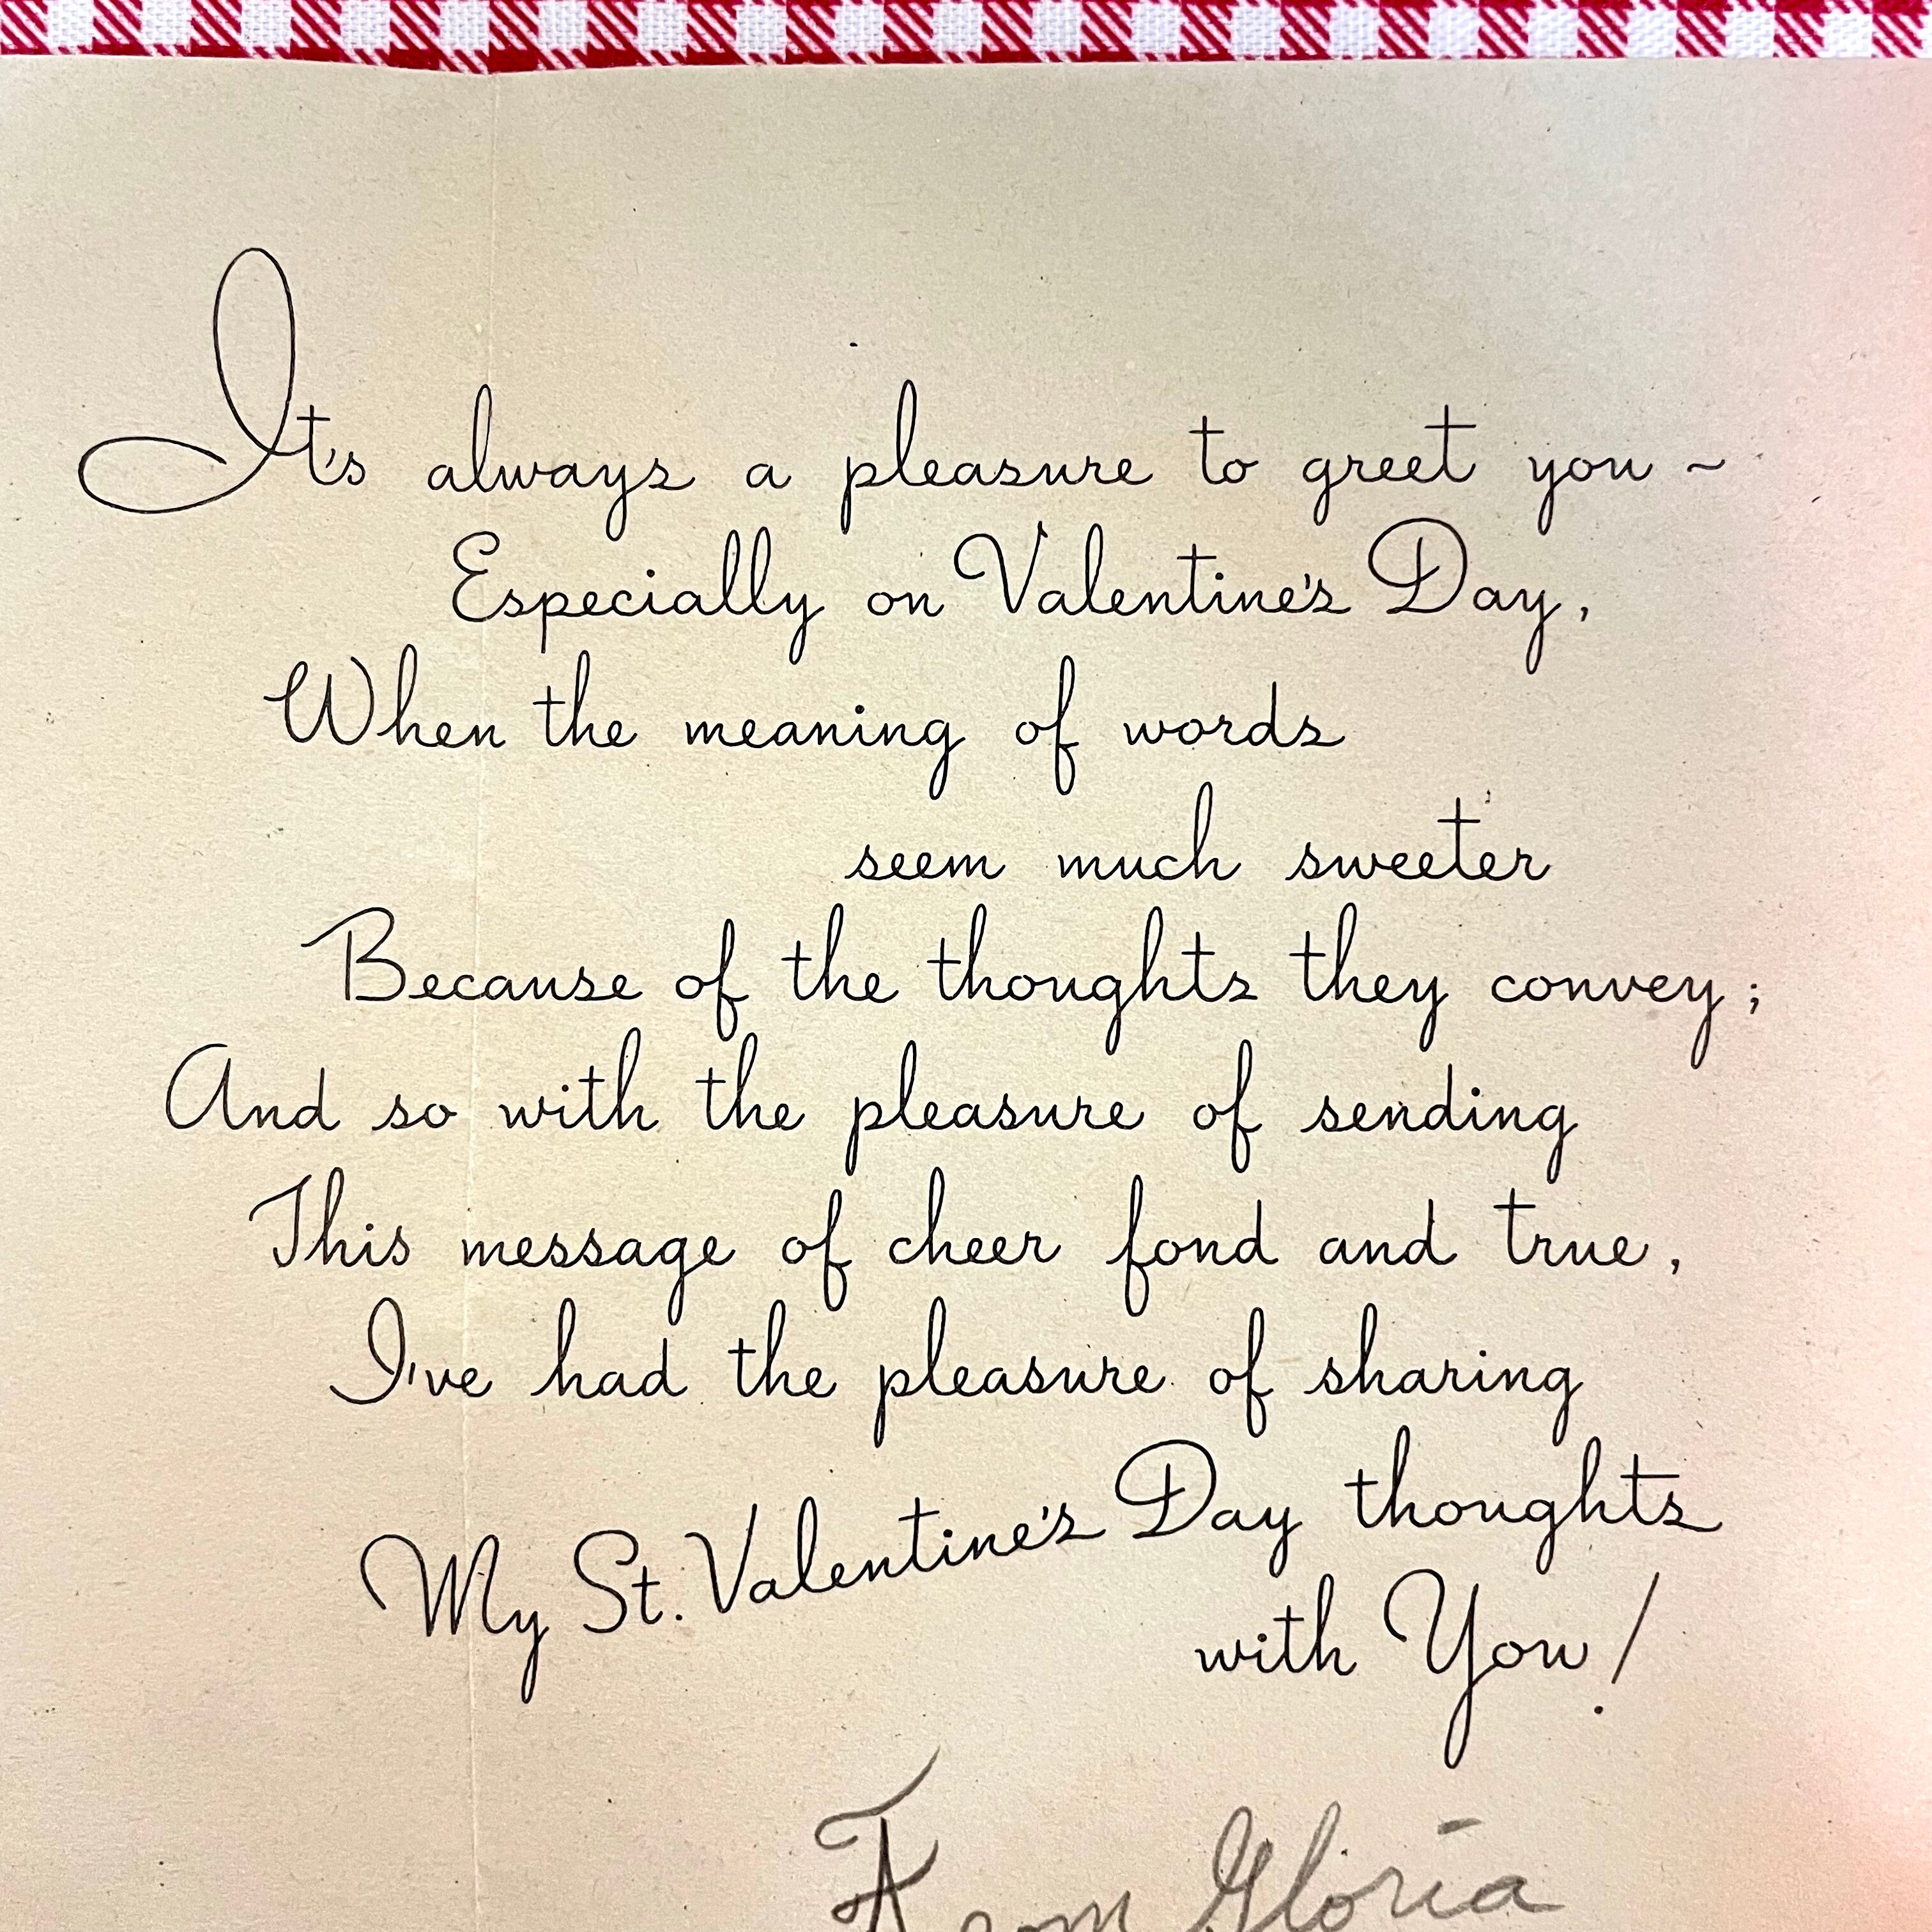 It's always a pleasure to greet you ~
Especially on Valentine's Day,
When the meaning of words
seem much sweeter
Because of the thoughts they convey;
And so with the pleasure of sending
This message of cheer fond and true,
I've had the pleasure of sharing
My St. Valentine's Day thoughts
with You!
From Gloria